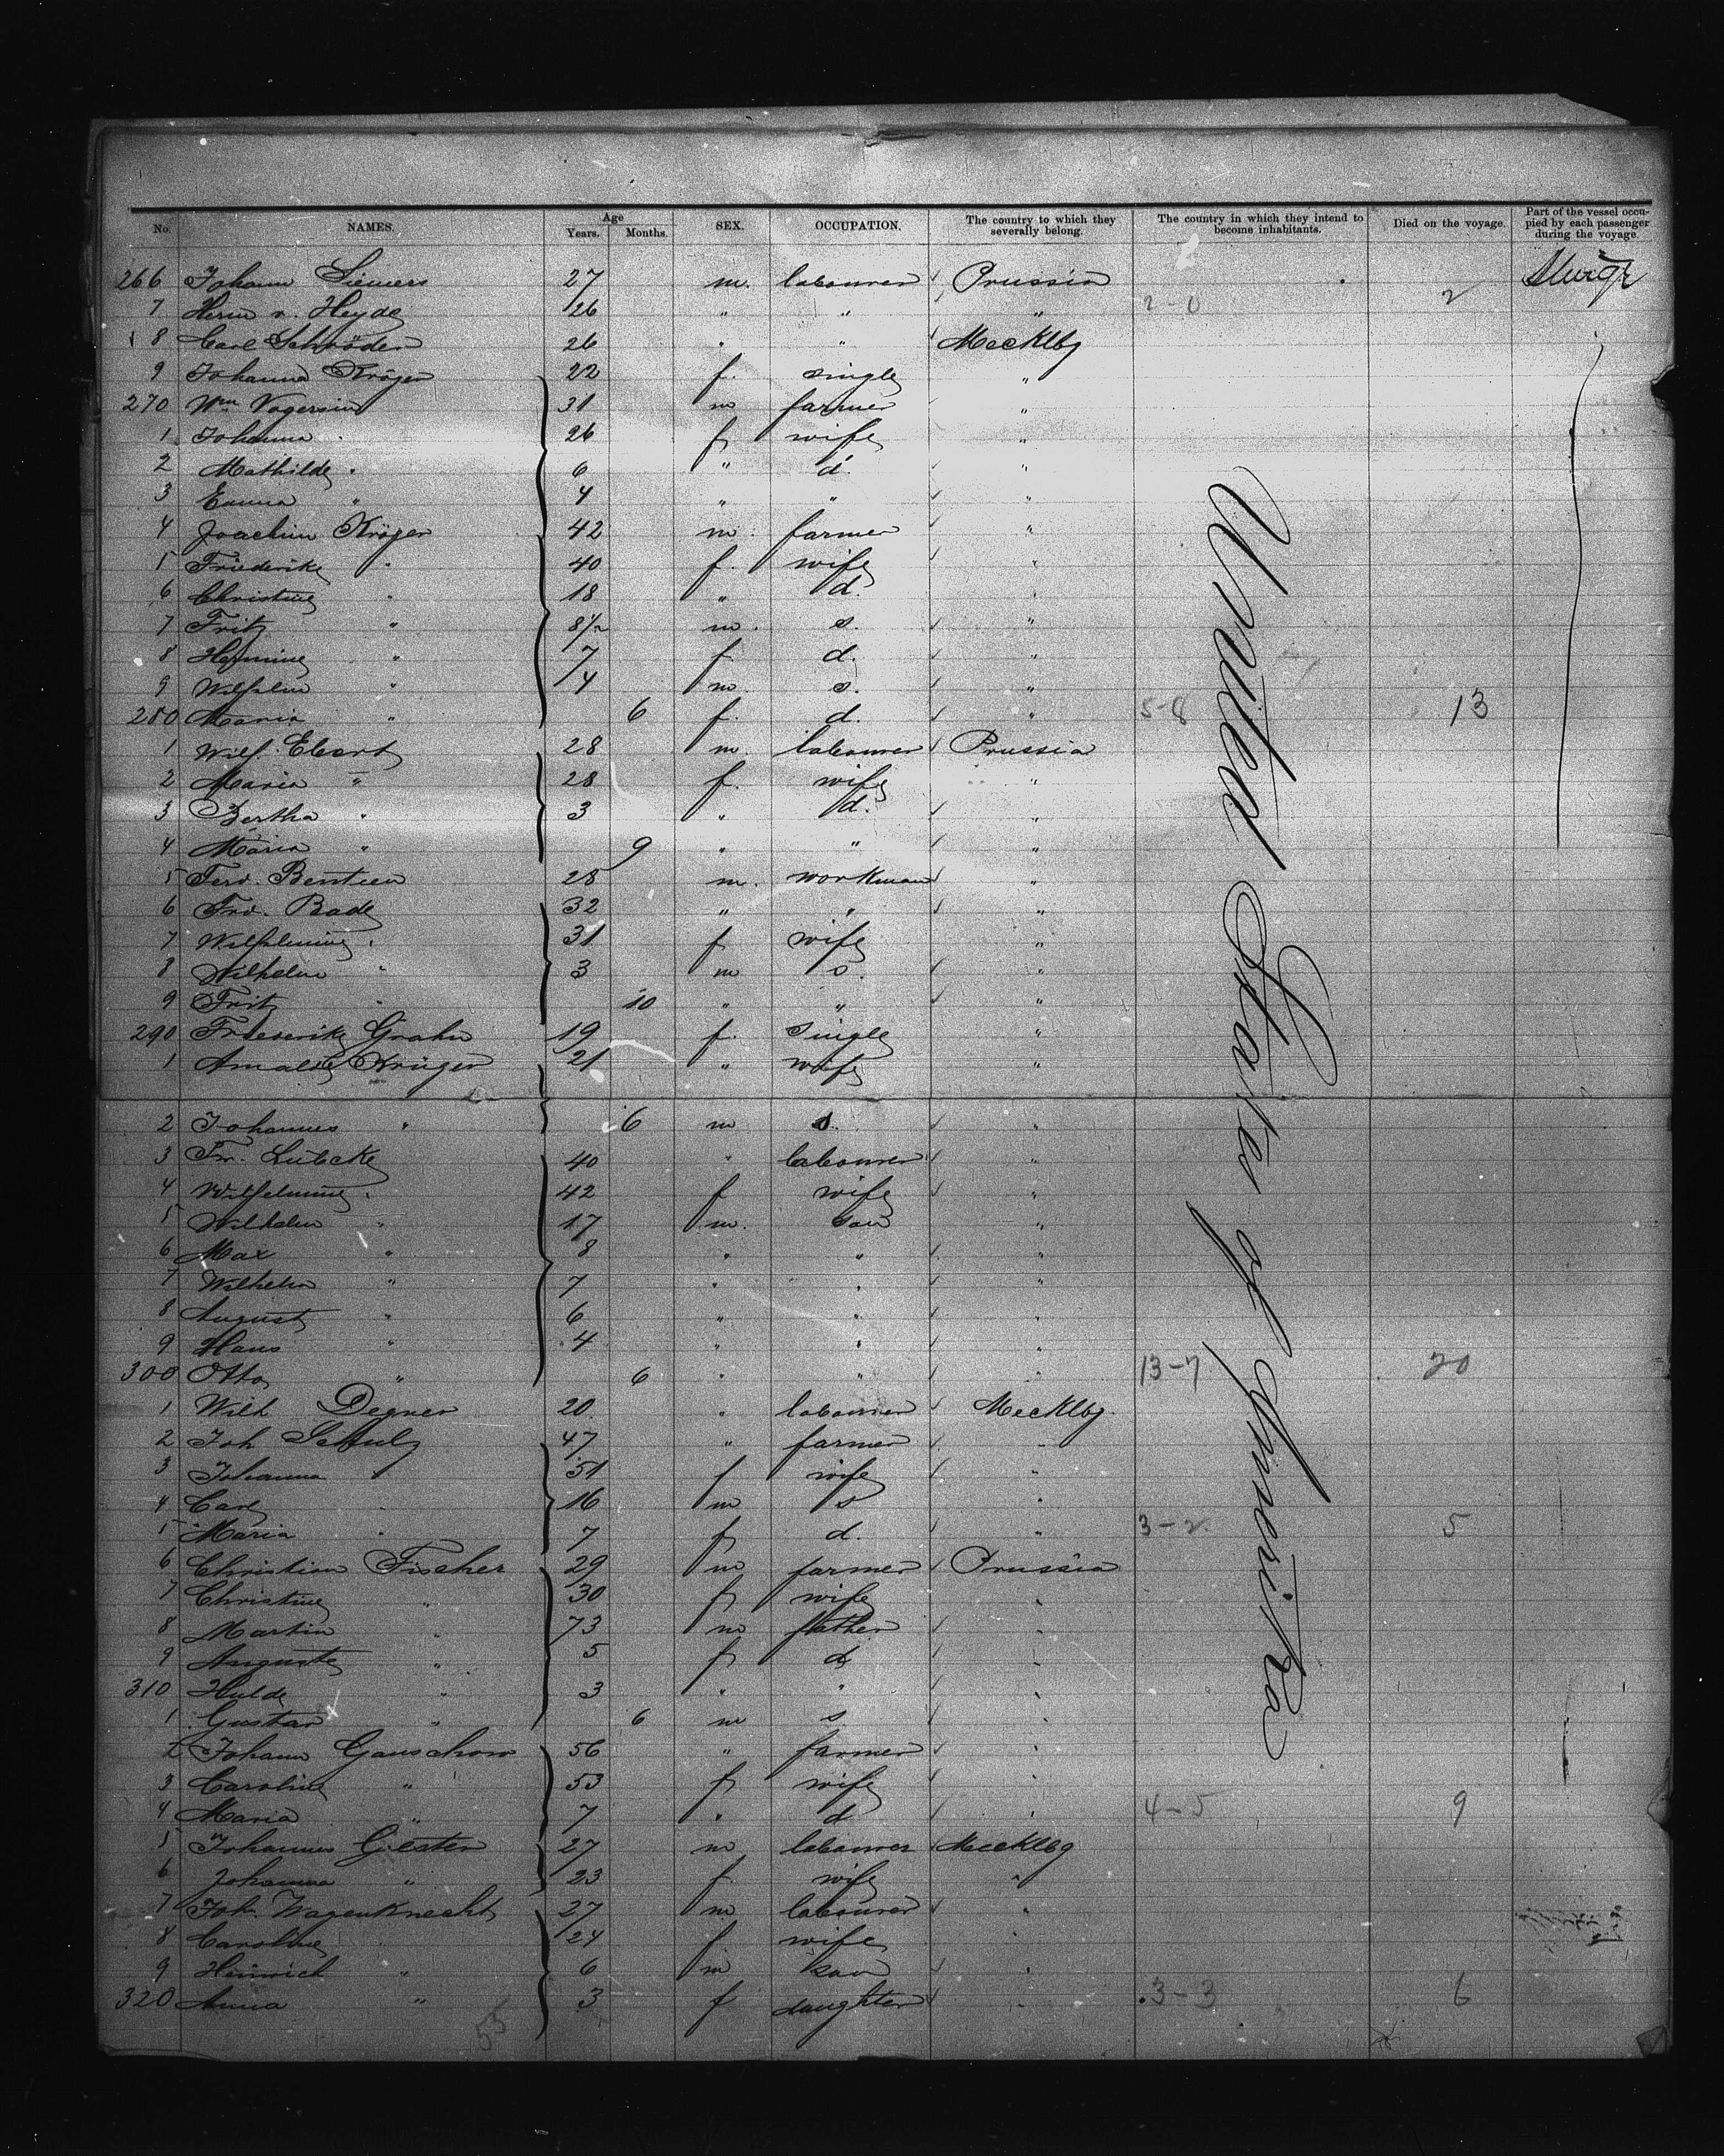 No. NAMES. Age Years. Months. SEX. OCCUPATION. The country to which they severally belong. The country in which they intend to become inhabitants. Died on the voyage. Part of the vessel occupied by each passenger during the voyage.
266 Johann Siemers 27 m. labourer Prussia
7 Herm v. Heyde 26 " " " 2-0 2
8 Carl Schröder 26 " " Mecklbg
9 Johanna Kröger 22 f. single "
270 Wm Vagersin 31 m farmer "
1 Johanna " 26 f wife "
2 Mathilde " 6 " d. "
3 Emma " 4 " " "
4 Joachim Kröger 42 m. farmer "
5 Friederike " 40 f. wife "
6 Christine " 18 " d. "
7 Fritz " 8½ m. s. "
8 Hermine " 7 f d. "
9 Wilhelm " 4 m. s. "
280 Maria " 6 f. d. " 5-8 13
1 Wilh. Ebert 28 m. labourer Prussia
2 Maria " 28 f. wife "
3 Bertha " 3 " d. "
4 Maria " 9 " " "
5 Ferd. Bentien 28 m. workman "
6 Frd. Bade 32 " " "
7 Wilhelmine " 31 f wife "
8 Wilhelm " 3 m s. "
9 Fritz " 10 " " "
290 Friederike Grahn 19 f. single "
1 Amalie Krüger 21 " wife "
2 Johannes " 6 m s. "
3 Fr. Lübcke 40 " labourer "
4 Wilhelmine " 42 f wife "
5 Wilhelm " 17 m. son "
6 Max " 8 " " "
7 Wilhelm " 7 " " "
8 August " 6 " " "
9 Hans " 4 " " "
300 Otto " 6 " " " 13-7 20
1 Wilh Degner 20 " labourer Mecklbg.
2 Joh Schulz 47 " farmer "
3 Johanna " 51 f wife "
4 Carl " 16 m s "
5 Maria " 7 f d. " 3-2 5
6 Christian Fischer 29 m farmer Prussia
7 Christine " 30 f wife "
8 Martin " 73 m father "
9 Auguste " 5 f d "
310 Hulda " 3 " " "
1 Gustav " 6 m s "
2 Johann Ganschow 56 " farmer "
3 Caroline " 53 f wife "
4 Maria " 7 " d " 4-5 9
5 Johannes Gester 27 m labourer Mecklbg
6 Johanna " 23 f wife "
7 Joh. Wagenknecht 27 m labourer "
8 Caroline " 24 f wife
9 Heinrich " 6 m son "
320 Anna " 3 f daughter " 3-3 6
55
United States of America